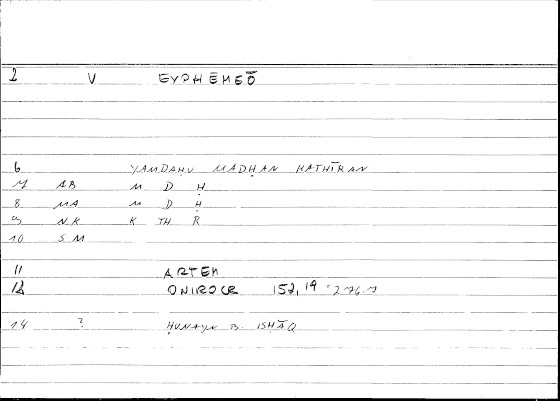 2 V EYPHĒMEŌ
6 YAMDAḤU MADḤAN KATHĪRAN
7 AB M D Ḥ
8 MA M D Ḥ
9 NK K TH R
10 SM
11 ARTEM
12 ONIROCR 152, 19 =
14 ? ḤUNAYN B. ISḤĀQ